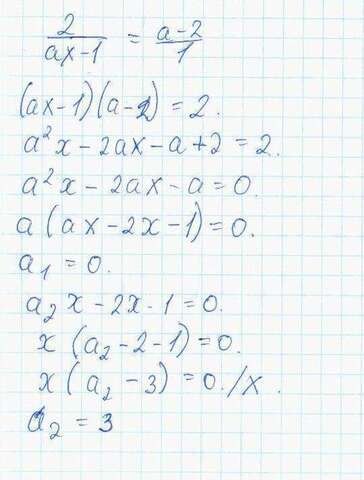 2/(ax-1) = (a-2)/1
(ax-1)(a-2) = 2.
a²x - 2ax - a + 2 = 2.
a²x - 2ax - a = 0.
a(ax - 2x - 1) = 0.
a₁ = 0.
a₂x - 2x - 1 = 0.
x(a₂ - 2 - 1) = 0.
x(a₂ - 3) = 0. /x.
a₂ = 3